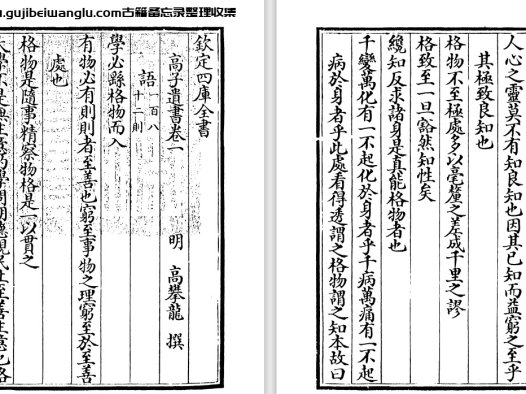 .gujibeiwanglu.com古籍备忘录整理收集
欽定四庫全書
高子遺書卷一
明 高攀龍 撰
語
一百八
十二則
學必繇格物而入
有物必有則則者至善也窮至事物之理窮至於至善
處也
格物是隨事精察物格是一以貫之
大學不是無主意的學問明德親民止至善主意也格
人心之靈莫不有知良知也因其已知而益窮之至乎
其極致良知也
格物不至極處多以毫釐之差成千里之謬
格致至一旦豁然知性矣
纔知反求諸身是真能格物者也
千變萬化有一不起化於身者乎千病萬痛有一不起
病於身者乎此處看得透謂之格物謂之知本故曰